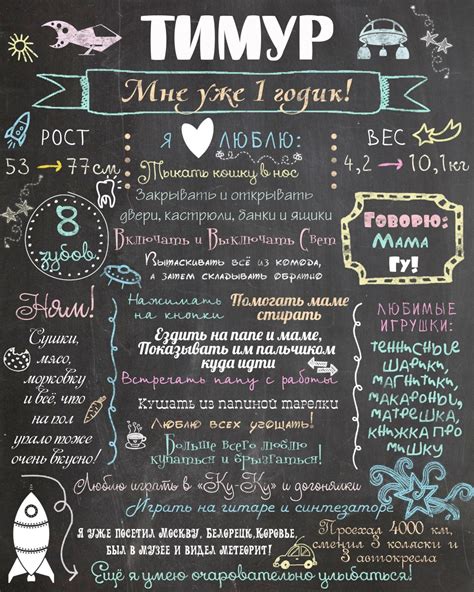 ТИМУР
Мне уже 1 годик!
РОСТ
53 → 77см
Я ЛЮБЛЮ:
ВЕС
4,2 → 10,1кг
Тыкать кошку в нос
Закрывать и открывать
двери, кастрюли, банки и ящики
Включать и Выключать Свет
Вытаскивать всё из комода,
а затем складывать обратно
8
зубов
Говорю:
Мама
Гу!
Ням!
Сушки,
мясо,
морковку
и всё, что
на пол
упало тоже
очень вкусно!
Нажимать
на кнопки
Помогать маме
стирать
Ездить на папе и маме,
Показывать им пальчиком
куда идти
Встречать папу с работы
Кушать из папиной тарелки
Люблю всех угощать!
Больше всего люблю
купаться и брызгаться!
ЛЮБИМЫЕ
ИГРУШКИ:
теннисные
шарики,
магнитики,
макароны,
матрешка,
книжка про
мишку
Люблю играть в «Ку-Ку» и догонялки
Играть на гитаре и синтезаторе
Я уже посетил Москву, Белорецк, Коровье,
был в музее и видел метеорит!
Проехал 4000 км,
сменил 3 коляски и
3 автокресла
Ещё я умею очаровательно улыбаться!